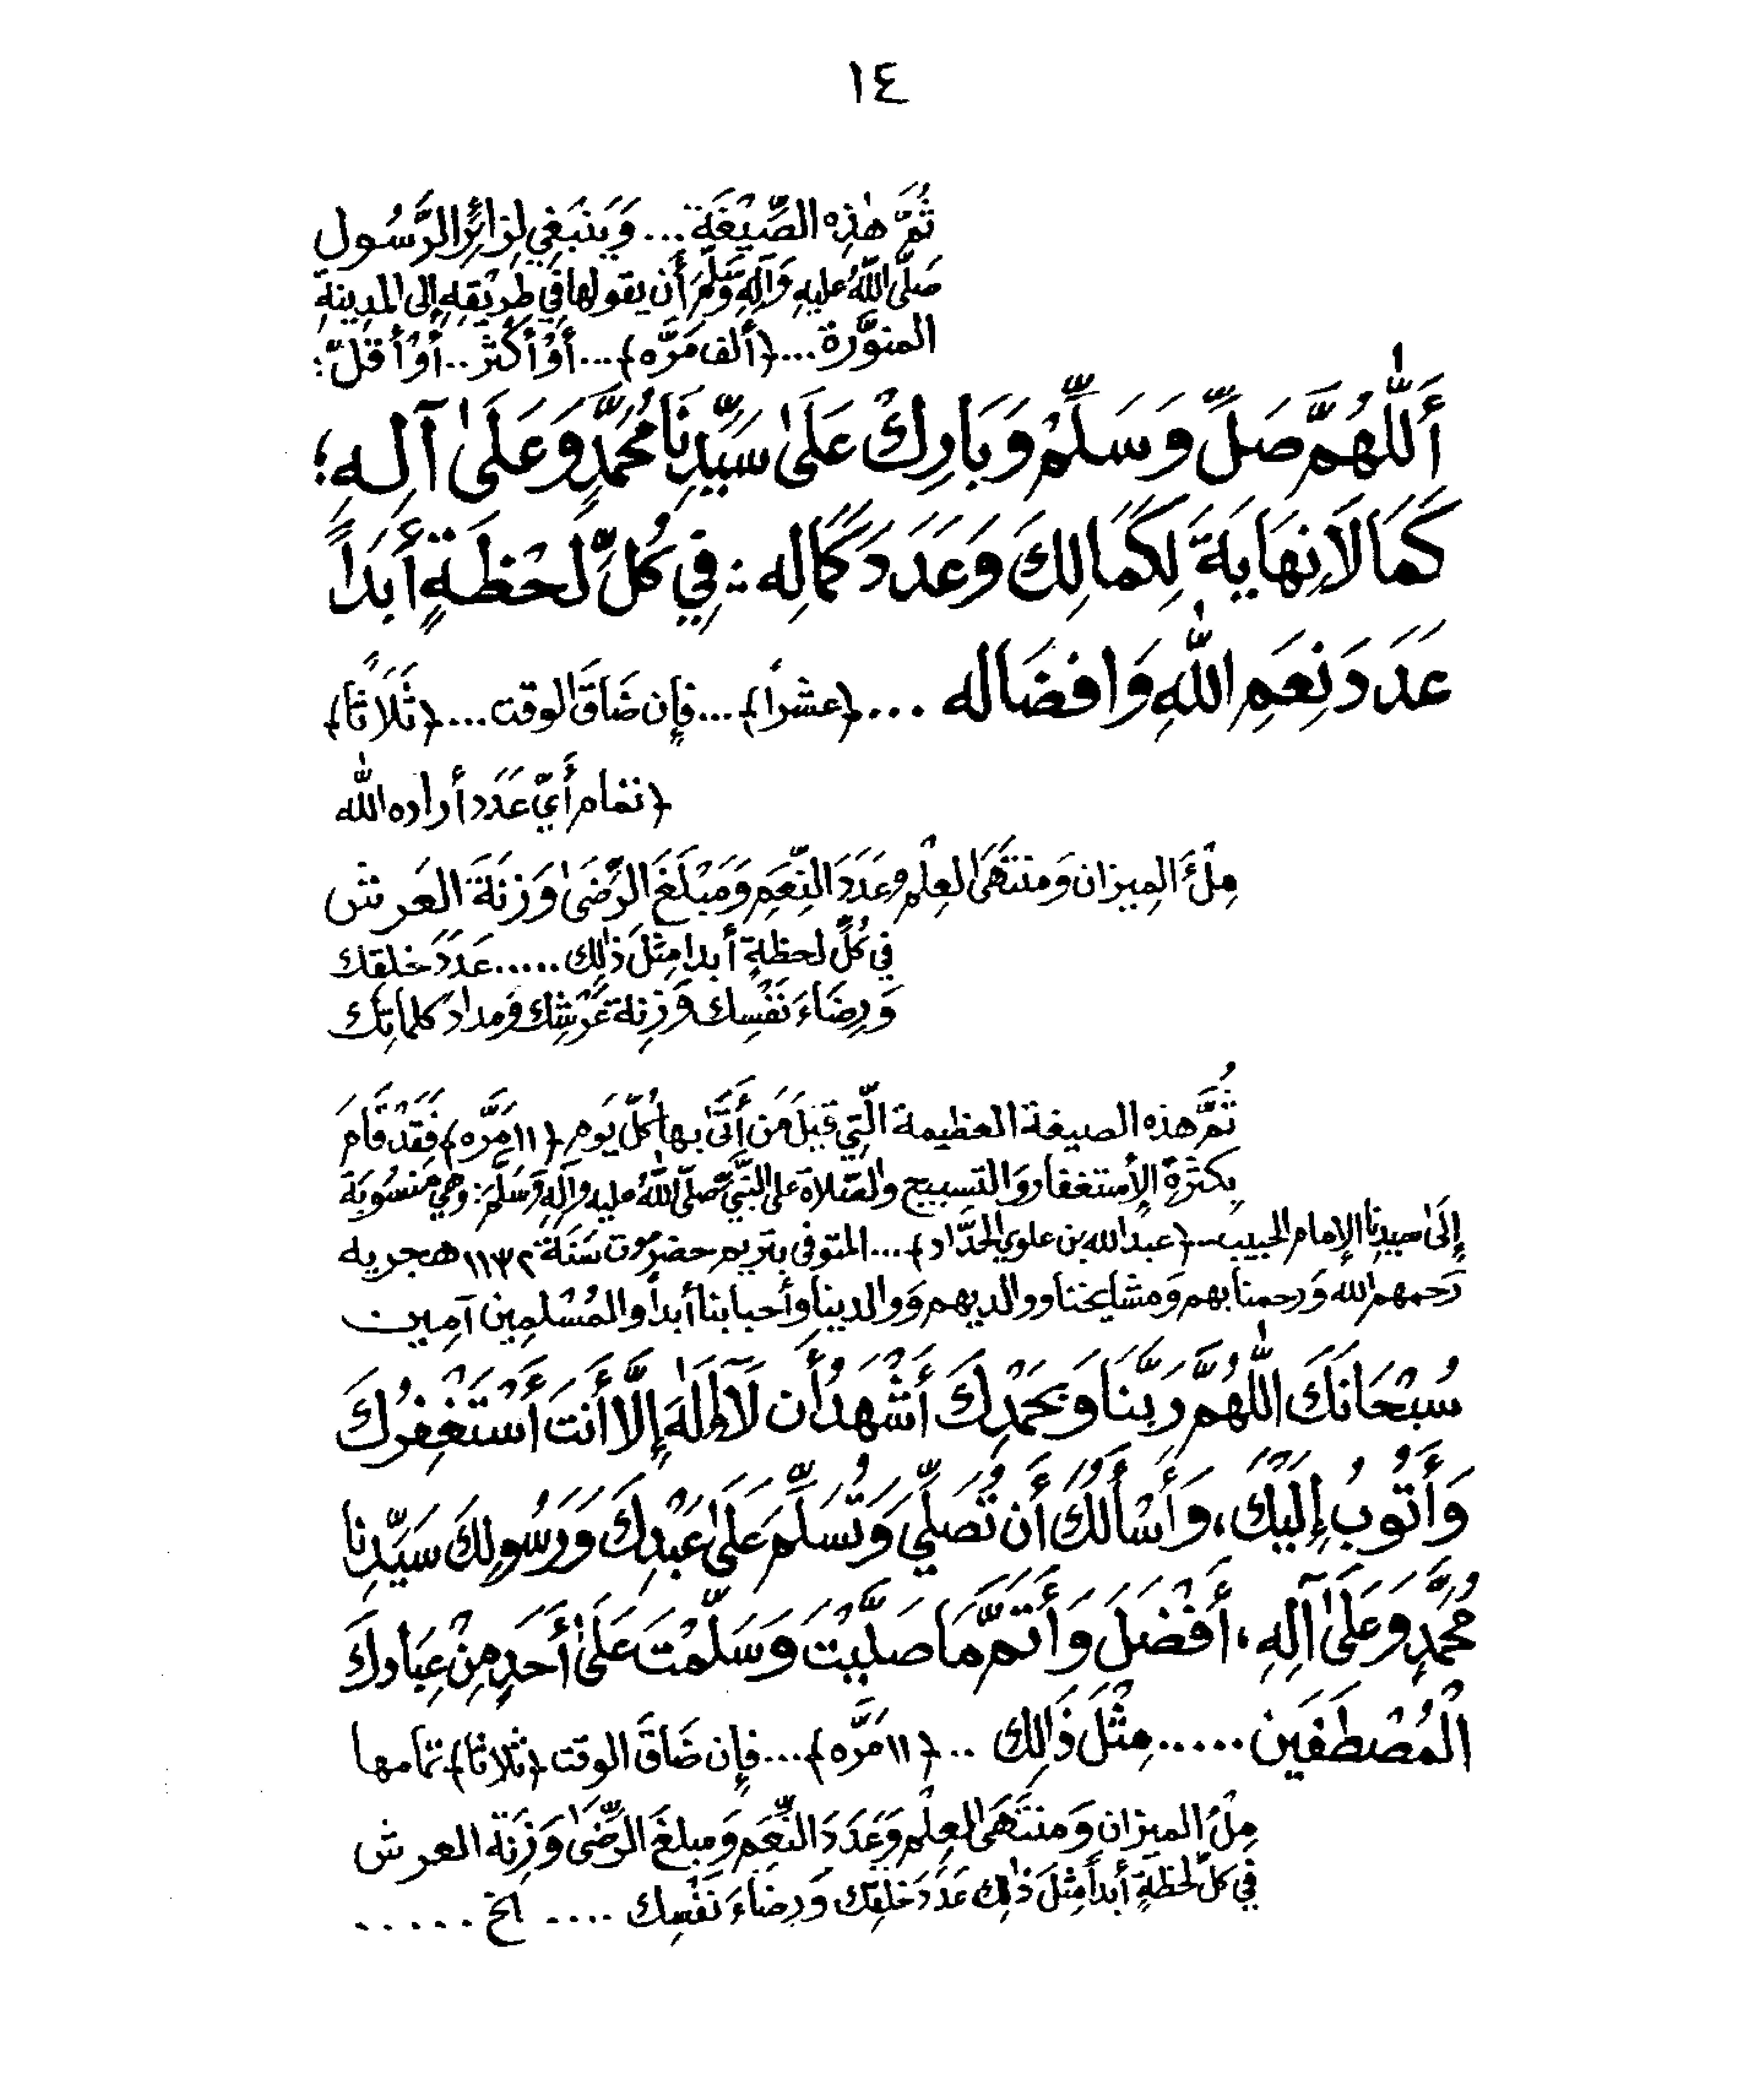 ١٤
ثُمَّ هٰذِهِ الصِّيْغَة ... وَيَنبَغِي لِزائِرِ الرَّسُول
صَلَّى اللّٰهُ عليهِ وَآلِهِ وَسَلَّمَ أَن يقولها في طَرِيْقِهِ إلى المدِينةِ
المنوَّرة ... ﴿ألف مَرَّه﴾ ... أَوْ أَكْثَر .. أَوْ أَقَلّ :
أَللّٰهُمَّ صَلِّ وَسَلِّمْ وَبَارِكْ عَلَىٰ سَيِّدِنَا مُحَمَّدٍ وَعَلَىٰ آلِهِ؛
كَمَا لَا نِهَايَةَ لِكَمَالِكَ وَعَدَدَ كَمَالِه : فِي كُلِّ لَحْظَةٍ أَبَدَاً
عَدَدَ نِعَمِ اللّٰهِ وَافضَاله ... ﴿عشراً﴾ ... فإِن ضَاقَ الوقت ... ﴿ثَلَاثاً﴾
﴿تمام أَيّ عَدَد أراده اللّٰه
مِلْءَ المِيزان وَمنتَهَىٰ العِلْمِ وعَدَدَ النِّعَمِ وَمَبْلَغَ الرِّضَىٰ وَزِنَةَ العَرش
في كُلِّ لحظةٍ أبدا مِثلَ ذٰلِك ..... عَدَدَ خلقِك
وَرِضَاءَ نَفْسِك وَزِنة عَرْشِك وَمدادَ كلماتِك
ثُمَّ هذه الصيغة العظيمة الَّتِي قِيلَ مَن أَتَىٰ بها كُلّ يَوم ﴿١١ مَرَّه﴾ فَقَدْ قَامَ
بِكثرَةِ الإِستغفار وَالتسبيح والصّلاة على النَّبيّ صلّى اللّٰهُ عليه وآلِهِ وَسَلَّمَ : وهي مَنسُوبَة
إِلَىٰ سيدِنا الإمام الحبيب .. ﴿عبد الله بن علوي الحَدَّاد﴾ ... المتوفى بتريم حضرموت سَنَة ١١٣٢ هجريه
رَحمهم الله وَرحمنا بهم وَمشايخنا ووالديهم وَوالدينا وأحبابنا أبداً والمُسْلِمِين آمِين
سُبْحَانَكَ اللّٰهُمَّ رَبَّنَا وَبِحَمْدِكَ أَشْهَدُ أَن لَآ إِلٰهَ إِلَّا أَنتَ أَسْتَغْفِرُكَ
وَأَتُوبُ إِلَيْكَ، وَأَسْأَلُكَ أَن تُصَلِّيَ وَتُسَلِّمَ عَلَىٰ عَبْدِكَ وَرَسُولِكَ سَيِّدِنا
مُحَمَّدٍ وَعَلَىٰ آلِهِ، أَفْضَلَ وَأَتَمَّ مَا صَلَّيْتَ وَسَلَّمْتَ عَلَىٰ أَحَدٍ مِنْ عِبَادِكَ
الْمُصْطَفَيْن ..... مِثْلَ ذَٰلِك .. ﴿١١ مَرَّه﴾ ... فإِن ضَاقَ الوقت ﴿ثلاثا﴾ تمامها
مِلْءُ الميزان وَمنتَهَىٰ العِلْمِ وَعَدَدَ النِّعَم وَمبلغَ الرِّضَىٰ وَزِنَة العرش
في كلّ لحظَةٍ أبداً مِثلَ ذٰلِك عَدَدَ خلقِك وَرِضَاءَ نَفْسِك .... الخ .....